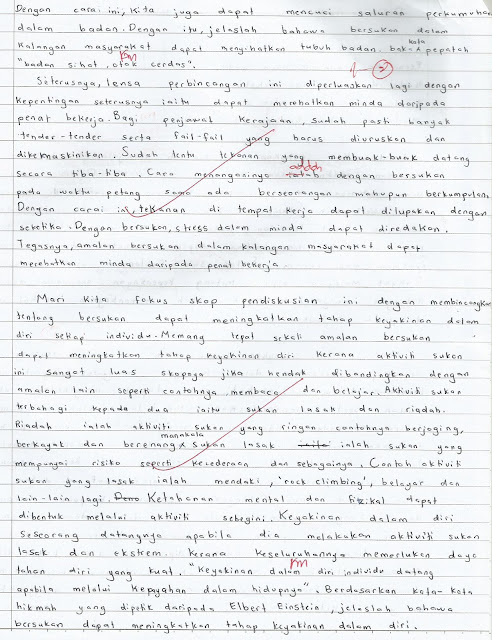 Dengan cara ini, kita juga dapat mencuci saluran perkumuhan
dalam badan. Dengan itu, jelaslah bahawa bersukan dalam
kata
kalangan masyarakat dapat menyihatkan tubuh badan. bak pepatah
"badan sihat, otak cerdas".
Seterusnya, lensa perbincangan ini diperluaskan lagi dengan
kepentingan seterusnya iaitu dapat merehatkan minda daripada
penat bekerja. Bagi penjawat kerajaan, sudah pasti banyak
tender-tender serta fail-fail yang harus diuruskan dan
dikemaskinikan. Sudah tentu tekanan yang membuak-buak datang
adalah
secara tiba-tiba. Cara menangasinya ialah dengan bersukan
pada waktu petang sama ada berseorangan mahupun berkumpulan.
Dengan cara ini, tekanan di tempat kerja dapat dilupakan dengan
seketika. Dengan bersukan, stress dalam minda dapat diredakan.
Tegasnya, amalan bersukan dalam kalangan masyarakat dapat
merehatkan minda daripada penat bekerja
Mari kita fokus skop pendiskusian ini dengan membincangkan
tentang bersukan dapat meningkatkan tahap keyakinan dalam
diri setiap individu. Memang tepat sekali amalan bersukan
dapat meningkatkan tahap keyakinan diri kerana aktiviti sukan
ini sangat luas skopnya jika hendak dibandingkan dengan
amalan lain seperti contohnya, membaca dan belajar. Aktiviti sukan
terbahagi kepada dua iaitu sukan lasak dan riadah.
Riadah ialah aktiviti sukan yang ringan contohnya berjoging,
manakala
berkayak dan berenang sukan lasak ialah sukan yang
mempunyai risiko seperti kecederaan dan sebagainya. Contoh aktiviti
sukan yang lasak ialah mendaki, 'rock climbing', belayar dan
lain-lain lagi. Ketahanan mental dan fizikal dapat
dibentuk melalui aktiviti sebegini. Keyakinan dalam diri
seseorang datangnya apabila dia melakukan aktiviti sukan
lasak dan ekstrem. Kerana keseluruhannya memerlukan daya
tahan diri yang kuat. "Keyakinan dalam diri individu datang
apabila melalui kepayahan dalam hidupnya". Berdasarkan kata-kata
hikmah yang dipetik daripada Elbert Einstein, jelaslah bahawa
bersukan dapat meningkatkan tahap keyakinan dalam diri.